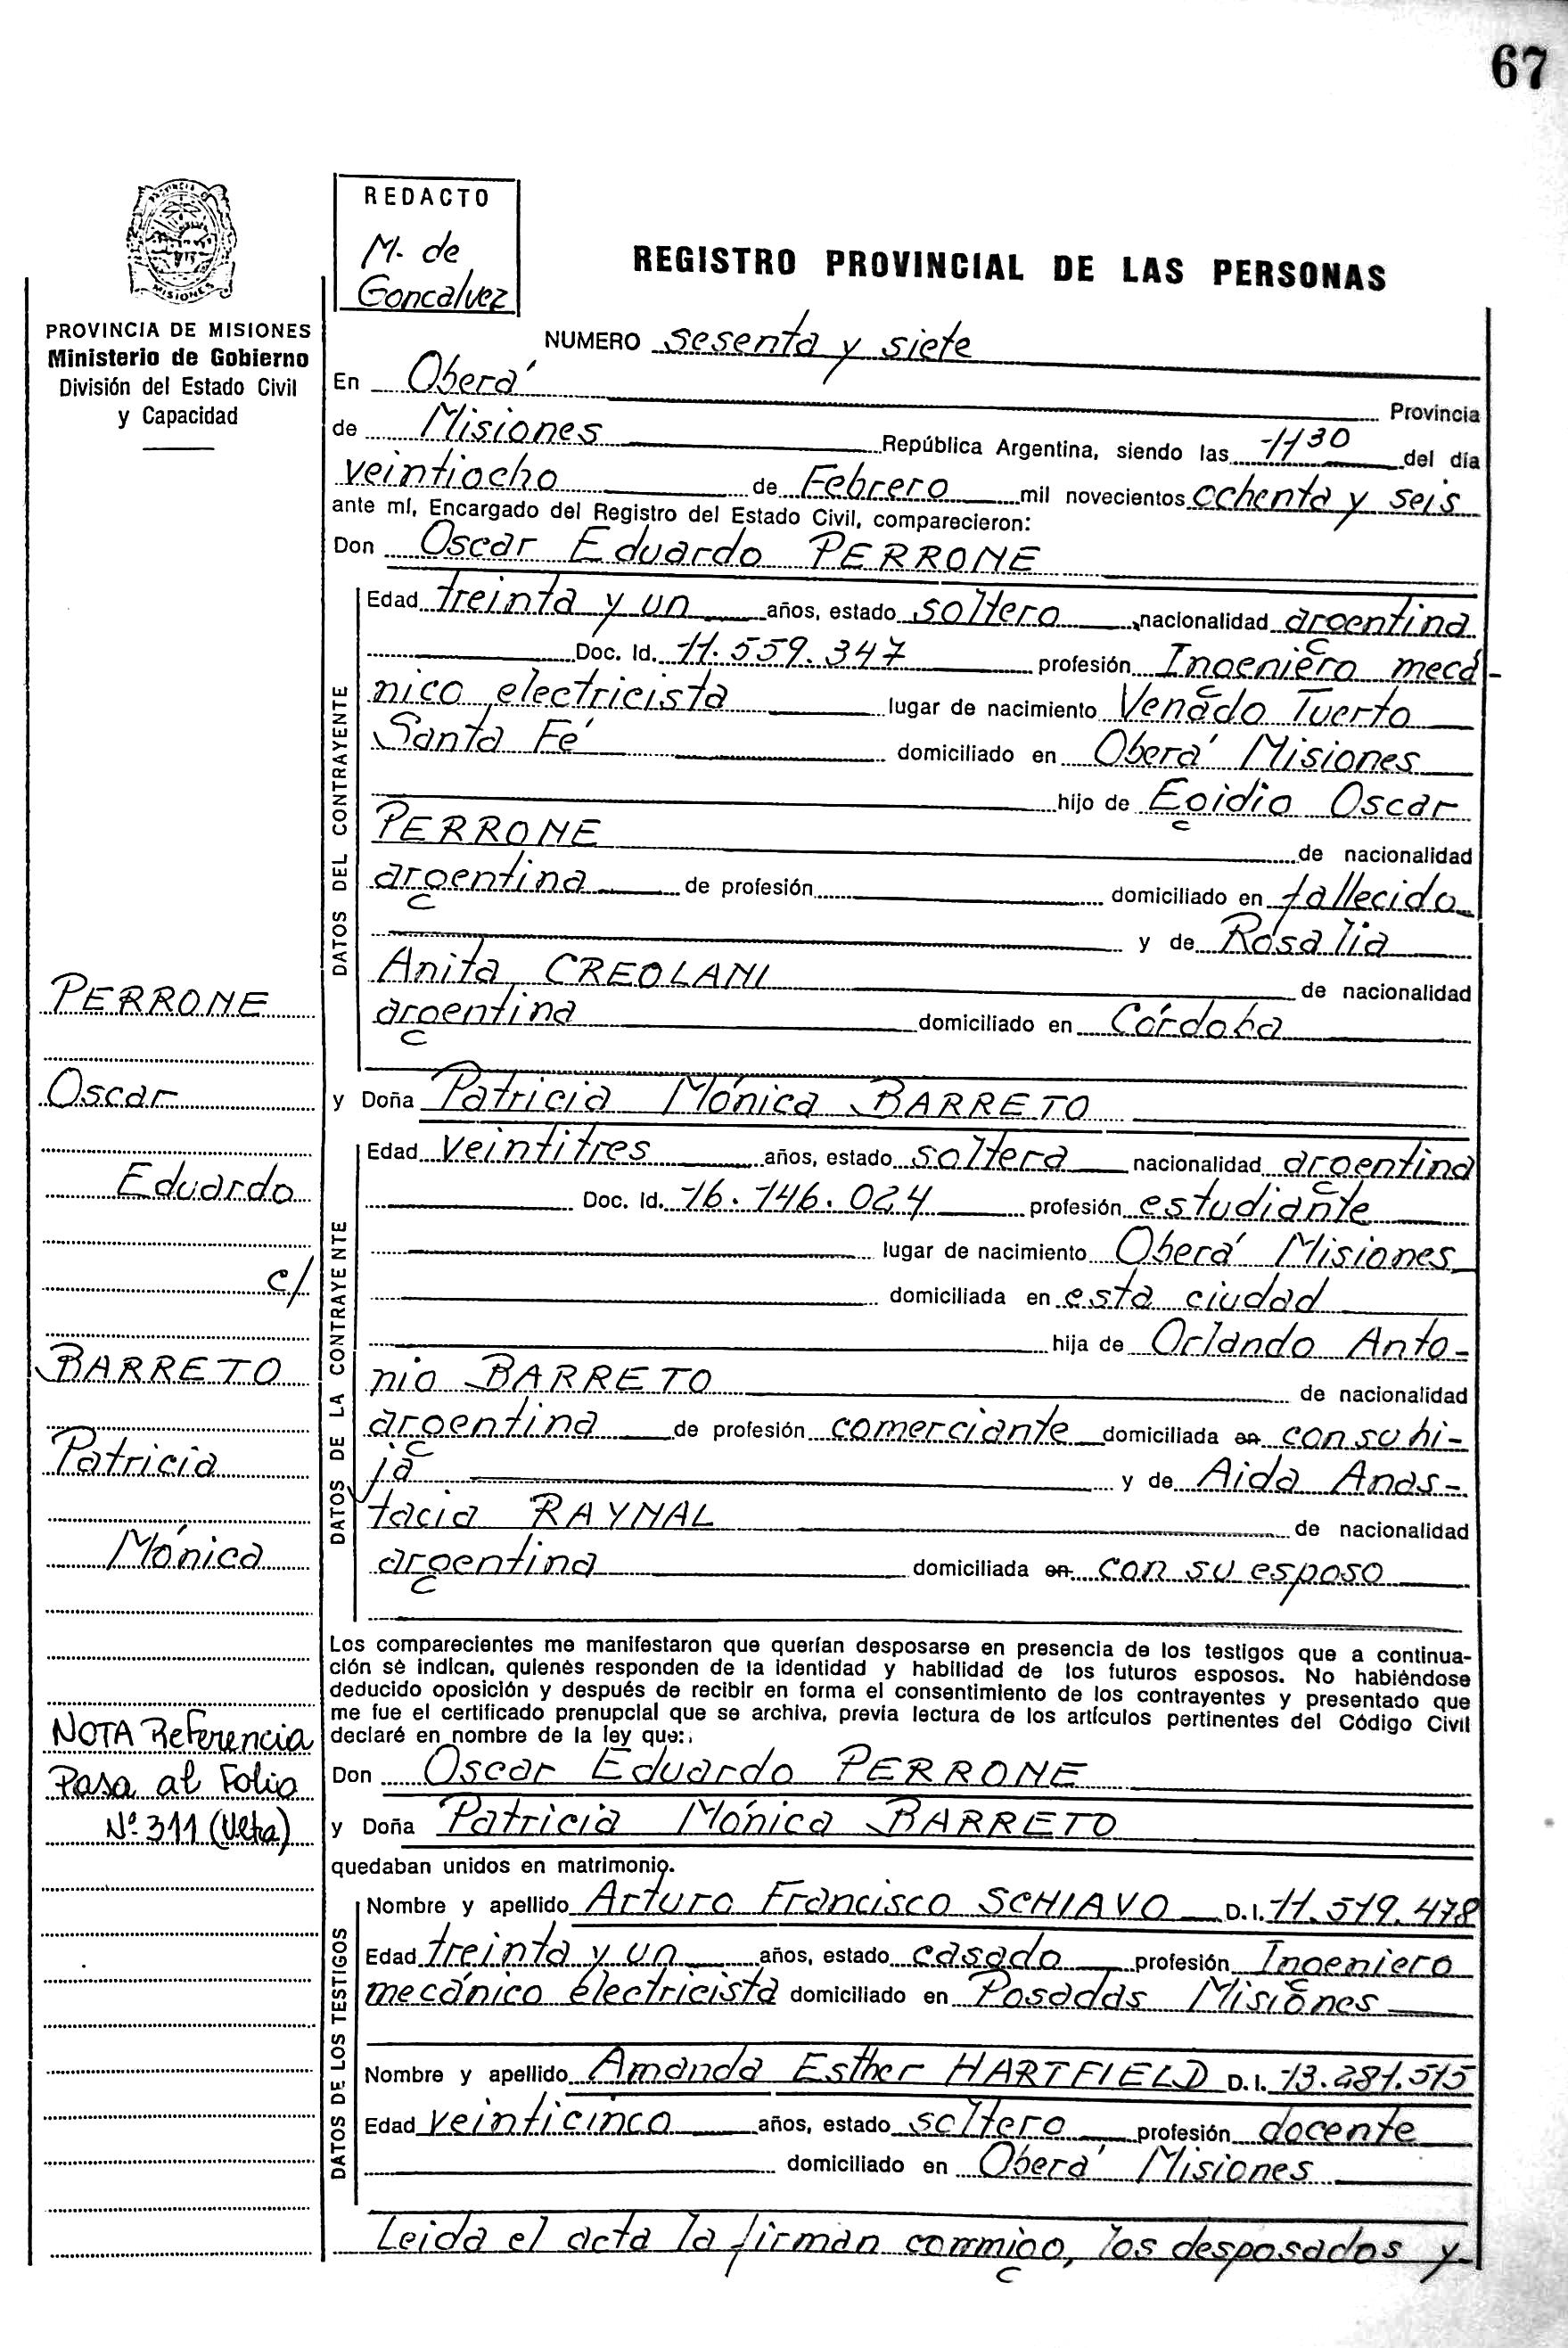 67
PROVINCIA DE MISIONES
Ministerio de Gobierno
División del Estado Civil
y Capacidad
REDACTO
M. de
Goncalvez
REGISTRO PROVINCIAL DE LAS PERSONAS
NUMERO sesenta y siete
En Oberá Provincia
de Misiones República Argentina, siendo las 1130 del día
veintiocho de Febrero mil novecientos ochenta y seis
ante mí, Encargado del Registro del Estado Civil, comparecieron:
Don Oscar Eduardo PERRONE
DATOS DEL CONTRAYENTE
Edad treinta y un años, estado soltero nacionalidad argentina
Doc. Id. 11.559.347 profesión Ingeniero mecá-
nico electricista lugar de nacimiento Venado Tuerto
Santa Fé domiciliado en Oberá Misiones
hijo de Egidio Oscar
PERRONE de nacionalidad
argentina de profesión domiciliado en fallecido
y de Rosalia
Anita CREOLANI de nacionalidad
argentina domiciliado en Córdoba
y Doña Patricia Mónica BARRETO
DATOS DE LA CONTRAYENTE
Edad veintitres años, estado soltera nacionalidad argentina
Doc. Id. 16.146.024 profesión estudiante
lugar de nacimiento Oberá Misiones
domiciliada en esta ciudad
hija de Orlando Anto-
nio BARRETO de nacionalidad
argentina de profesión comerciante domiciliada en con su hi-
ja y de Aida Anas-
tacia RAYNAL de nacionalidad
argentina domiciliada en con su esposo
Los comparecientes me manifestaron que querían desposarse en presencia de los testigos que a continua-
ción sè indican, quienès responden de la identidad y habilidad de los futuros esposos. No habiéndose
deducido oposición y después de recibir en forma el consentimiento de los contrayentes y presentado que
me fue el certificado prenupcial que se archiva, previa lectura de los artículos pertinentes del Código Civil
declaré en nombre de la ley que:
Don Oscar Eduardo PERRONE
y Doña Patricia Mónica BARRETO
quedaban unidos en matrimonio.
DATOS DE LOS TESTIGOS
Nombre y apellido Arturo Francisco SCHIAVO D.I. 11.519.478
Edad treinta y un años, estado casado profesión Ingeniero
mecánico electricista domiciliado en Posadas Misiones
Nombre y apellido Amanda Esther HARTFIELD D.I. 13.281.515
Edad veinticinco años, estado soltero profesión docente
domiciliado en Oberá Misiones
Leida el acta la firman conmigo, los desposados y
PERRONE
Oscar
Eduardo
c/
BARRETO
Patricia
Mónica
NOTA Referencia
Pasa al Folio
Nº 311 (Vlta)